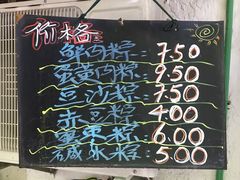 价格
鲜肉粽: 7.50
蛋黄肉粽: 9.50
豆沙粽: 7.50
赤豆粽: 4.00
蜜枣粽: 6.00
碱水粽: 5.00